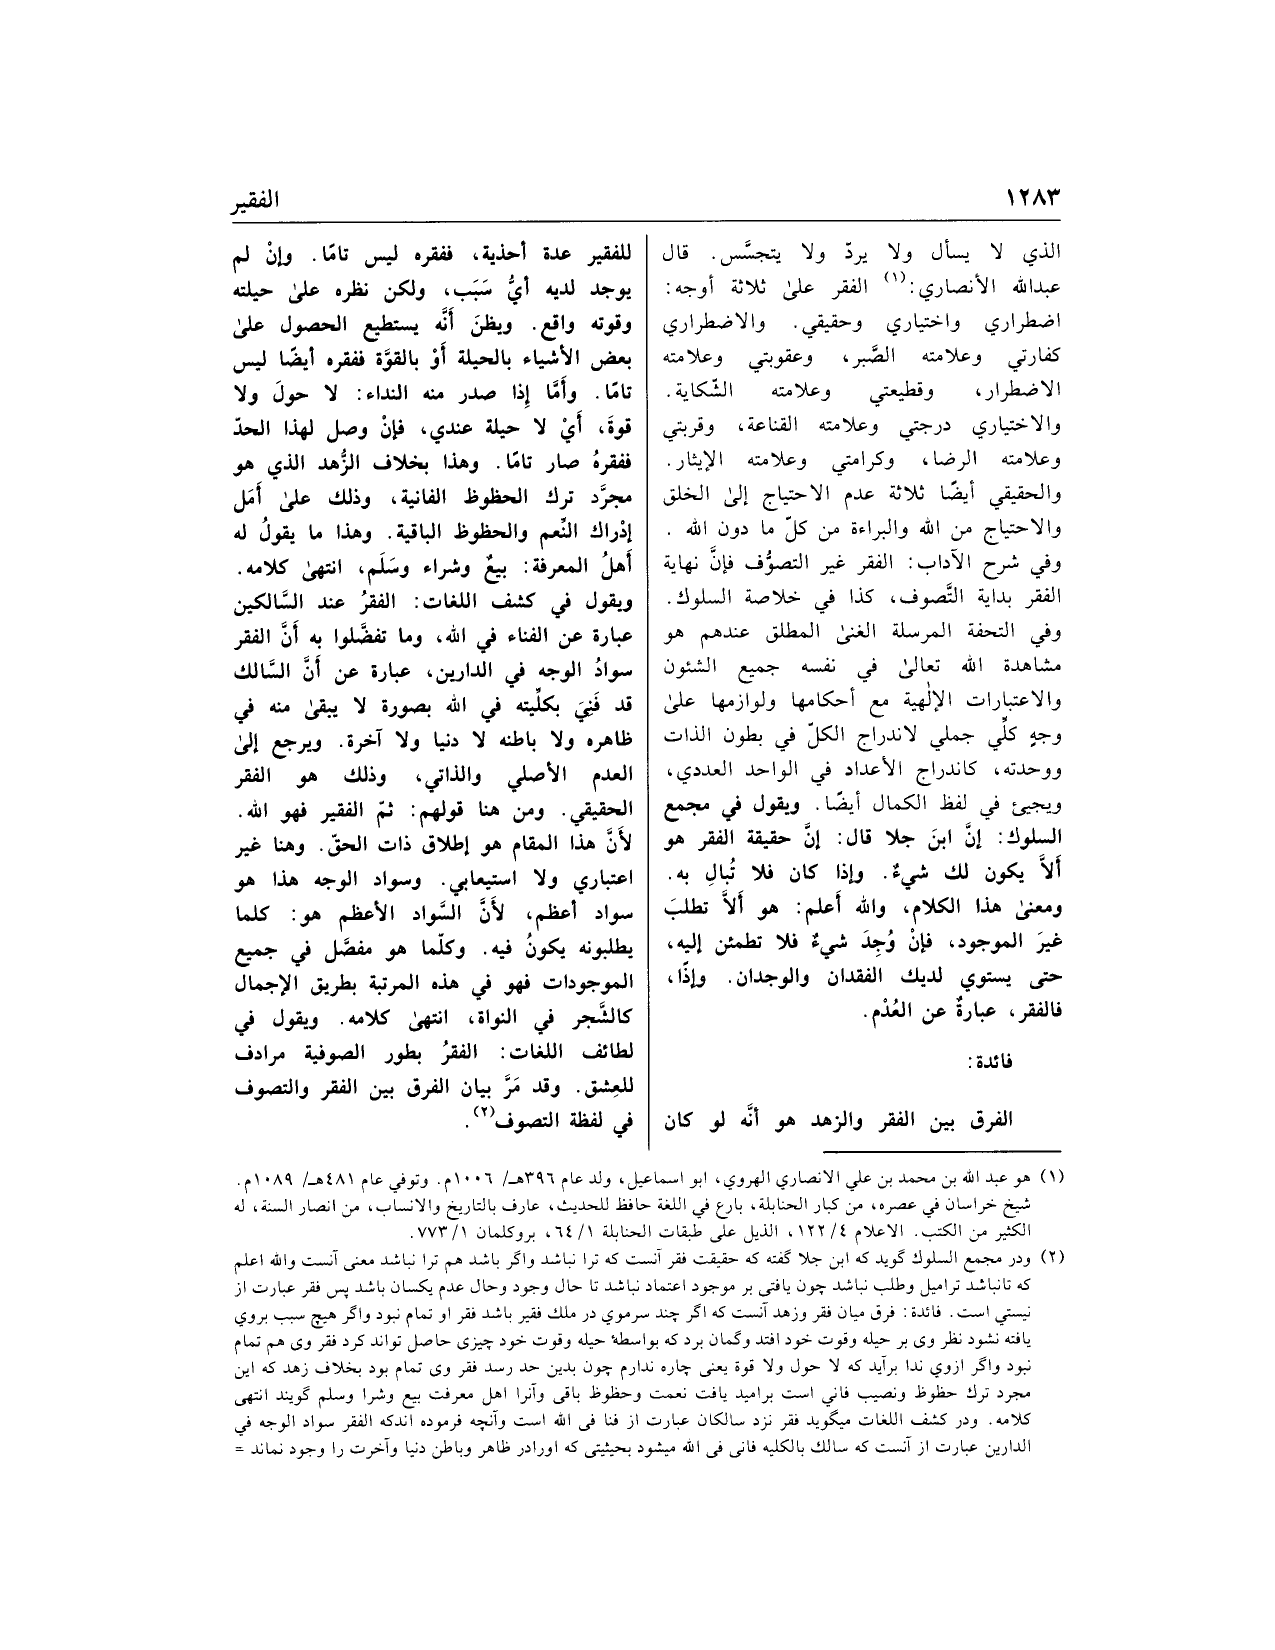 ١٢٨٣
الفقير
الذي لا يسأل ولا يردّ ولا يتجسَّس. قال
عبدالله الأنصاري:(١) الفقر علىٰ ثلاثة أوجه:
اضطراري واختياري وحقيقي. والاضطراري
كفارتي وعلامته الصَّبر، وعقوبتي وعلامته
الاضطرار، وقطيعتي وعلامته الشّكاية.
والاختياري درجتي وعلامته القناعة، وقربتي
وعلامته الرضا، وكرامتي وعلامته الإيثار.
والحقيقي أيضًا ثلاثة عدم الاحتياج إلىٰ الخلق
والاحتياج من الله والبراءة من كلّ ما دون الله .
وفي شرح الآداب: الفقر غير التصوُّف فإنَّ نهاية
الفقر بداية التَّصوف، كذا في خلاصة السلوك.
وفي التحفة المرسلة الغنىٰ المطلق عندهم هو
مشاهدة الله تعالىٰ في نفسه جميع الشئون
والاعتبارات الإلٰهية مع أحكامها ولوازمها علىٰ
وجهٍ كلِّي جملي لاندراج الكلّ في بطون الذات
ووحدته، كاندراج الأعداد في الواحد العددي،
ويجيئ في لفظ الكمال أيضًا. ويقول في مجمع
السلوك: إنَّ ابنَ جلا قال: إنَّ حقيقة الفقر هو
ألاَّ يكون لك شيءٌ. وإذا كان فلا تُبالِ به.
ومعنىٰ هذا الكلام، والله أعلم: هو ألاَّ تطلبَ
غيرَ الموجود، فإنْ وُجِدَ شيءٌ فلا تطمئن إليه،
حتى يستوي لديك الفقدان والوجدان. وإذًا،
فالفقر، عبارةٌ عن العُدْم.
فائدة:
الفرق بين الفقر والزهد هو أنَّه لو كان
للفقير عدة أحذية، ففقره ليس تامًا. وإنْ لم
يوجد لديه أيُّ سَبَب، ولكن نظره علىٰ حيلته
وقوته واقع. ويظنَ أَنَّه يستطيع الحصول علىٰ
بعض الأشياء بالحيلة أوْ بالقوَّة ففقره أيضًا ليس
تامًا. وأمَّا إِذا صدر منه النداء: لا حولَ ولا
قوةَ، أيْ لا حيلة عندي، فإنْ وصل لهذا الحدّ
ففقرهُ صار تامًا. وهذا بخلاف الزُّهد الذي هو
مجرَّد ترك الحظوظ الفانية، وذلك علىٰ أَمَل
إدْراك النِّعم والحظوظ الباقية. وهذا ما يقولُ له
أهلُ المعرفة: بيعٌ وشراء وسَلَم، انتهىٰ كلامه.
ويقول في كشف اللغات: الفقرُ عند السَّالكين
عبارة عن الفناء في الله، وما تفضَّلوا به أَنَّ الفقر
سوادُ الوجه في الدارين، عبارة عن أَنَّ السَّالك
قد فَنِيَ بكلِّيته في الله بصورة لا يبقىٰ منه في
ظاهره ولا باطنه لا دنيا ولا آخرة. ويرجع إلىٰ
العدم الأصلي والذاتي، وذلك هو الفقر
الحقيقي. ومن هنا قولهم: ثمّ الفقير فهو الله.
لأَنَّ هذا المقام هو إطلاق ذات الحقّ. وهنا غير
اعتباري ولا استيعابي. وسواد الوجه هذا هو
سواد أعظم، لأَنَّ السَّواد الأعظم هو: كلما
يطلبونه يكونُ فيه. وكلّما هو مفصَّل في جميع
الموجودات فهو في هذه المرتبة بطريق الإجمال
كالشَّجر في النواة، انتهىٰ كلامه. ويقول في
لطائف اللغات: الفقرُ بطور الصوفية مرادف
للعِشق. وقد مَرَّ بيان الفرق بين الفقر والتصوف
في لفظة التصوف(٢).
(١) هو عبد الله بن محمد بن علي الانصاري الهروي، ابو اسماعيل، ولد عام ٣٩٦هـ/ ١٠٠٦م. وتوفي عام ٤٨١هـ/ ١٠٨٩م.
شيخ خراسان في عصره، من كبار الحنابلة، بارع في اللغة حافظ للحديث، عارف بالتاريخ والانساب، من انصار السنة، له
الكثير من الكتب. الاعلام ٤/ ١٢٢، الذيل على طبقات الحنابلة ١/ ٦٤، بروكلمان ١/ ٧٧٣.
(٢) ودر مجمع السلوك گويد كه ابن جلا گفته كه حقيقت فقر آنست كه ترا نباشد واگر باشد هم ترا نباشد معنى آنست والله اعلم
كه تانباشد تراميل وطلب نباشد چون يافتى بر موجود اعتماد نباشد تا حال وجود وحال عدم يكسان باشد پس فقر عبارت از
نيستي است. فائدة: فرق ميان فقر وزهد آنست كه اگر چند سرموي در ملك فقير باشد فقر او تمام نبود واگر هيچ سبب بروي
يافته نشود نظر وى بر حيله وقوت خود افتد وگمان برد كه بواسطهٔ حيله وقوت خود چيزى حاصل تواند كرد فقر وى هم تمام
نبود واگر ازوي ندا برآيد كه لا حول ولا قوة يعنى چاره ندارم چون بدين حد رسد فقر وى تمام بود بخلاف زهد كه اين
مجرد ترك حظوظ ونصيب فاني است براميد يافت نعمت وحظوظ باقى وآنرا اهل معرفت بيع وشرا وسلم گويند انتهى
كلامه. ودر كشف اللغات ميگويد فقر نزد سالكان عبارت از فنا فى الله است وآنچه فرموده اندكه الفقر سواد الوجه في
الدارين عبارت از آنست كه سالك بالكليه فانى فى الله ميشود بحيثيتى كه اورادر ظاهر وباطن دنيا وآخرت را وجود نماند =